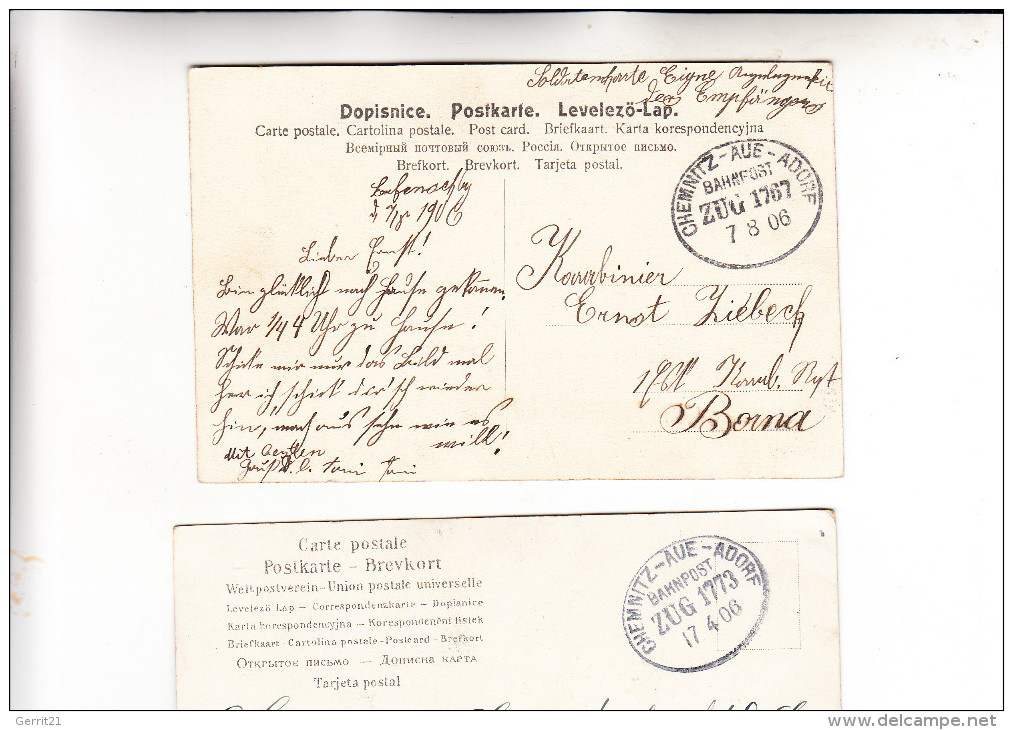 Soldatenkarte Eigne Angelegenheit
des Empfängers
Dopisnice. Postkarte. Levelező-Lap.
Carte postale. Cartolina postale. Post card. Briefkaart. Karta korespondencyjna
Всемірный почтовый союзъ. Россія. Открытое письмо.
Brefkort. Brevkort. Tarjeta postal.
CHEMNITZ-AUE-ADORF
BAHNPOST
ZUG 1767
7 8 06
1906
Lieber Ernst!
Bin glücklich nach Hause gekommen.
War 1/4 4 Uhr zu Hause!
Schicke mir nur das Bild mal
her ich schick dir'sch wieder
hin, mach aus sehn wie es
will!
Mit
Karabinier
Ernst Ziebech
Karab. Rgt
Borna
Carte postale
Postkarte - Brevkort
Weltpostverein - Union postale universelle
Levelező Lap - Correspondenzkarte - Dopisnice
Karta korespondencyjna - Korespondenční listek
Briefkaart - Cartolina postale - Postcard - Brefkort
Открытое письмо — Дописна карта
Tarjeta postal
CHEMNITZ-AUE-ADORF
BAHNPOST
ZUG 1773
17 4 06
Gerrit21
delcampe.net